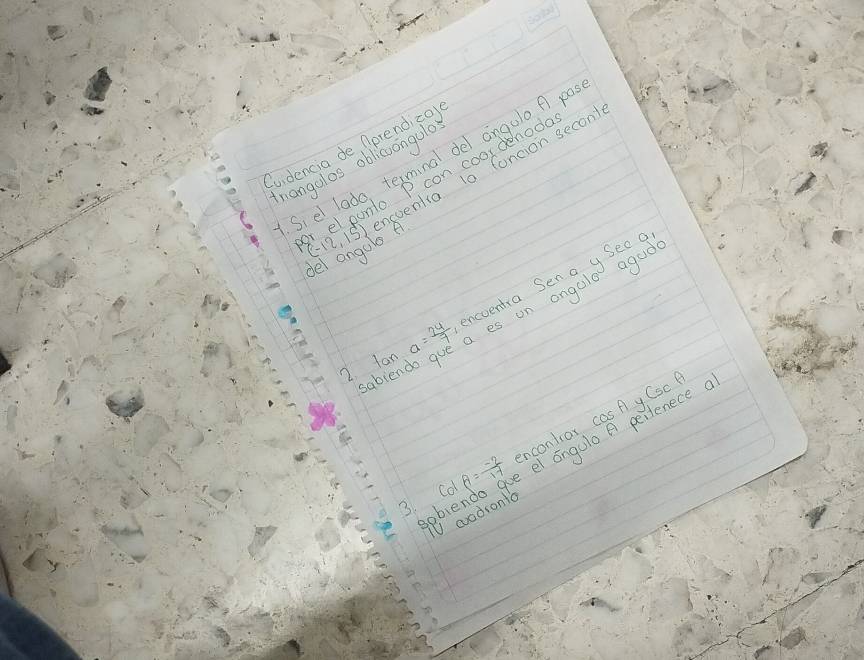 Evidencia de Aprendizaje
triangulos oblicuángulos
1. Si el lado terminal del ángulo A pase
por el punto P con coordenadas
(-12, 15), encuentra la función secante
del angulo A.
2. tan a = 24/7, encuentra Sen a y Sec a,
sabiendo que a es un angulo agudo
3. Cot A = -2/17 encontrar cos A y Csc A
sabiendo que el ángulo A pertenece al
IV cuadranto